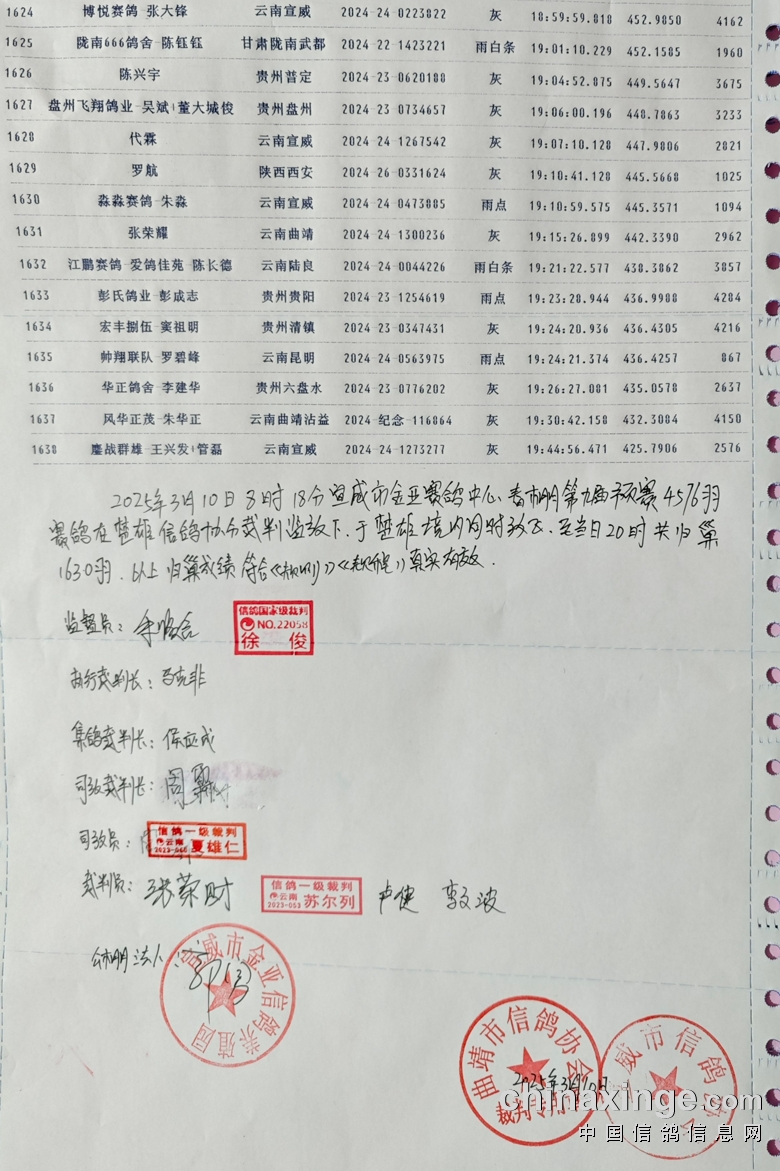 1624 博悦赛鸽 张大锋 云南宣威 2024-24-0223822 灰 18:59:59.818 452.9850 4162
1625 陇南666鸽舍-陈钰钰 甘肃陇南武都 2024-22-1423221 雨白条 19:01:10.229 452.1585 1960
1626 陈兴宇 贵州普定 2024-23-0620188 灰 19:04:52.875 449.5647 3675
1627 盘州飞翔鸽业-吴斌+董大城俊 贵州盘州 2024-23-0734657 灰 19:06:00.196 448.7863 3233
1628 代霖 云南宣威 2024-24-1267542 灰 19:07:10.128 447.9806 2821
1629 罗航 陕西西安 2024-26-0331624 灰 19:10:41.128 445.5668 1025
1630 淼淼赛鸽-朱淼 云南宣威 2024-24-0473885 雨点 19:10:59.575 445.3571 1094
1631 张荣耀 云南曲靖 2024-24-1300236 灰 19:15:26.899 442.3390 2962
1632 江鹏赛鸽-爱鸽佳苑-陈长德 云南陆良 2024-24-0044226 雨白条 19:21:22.577 438.3862 3857
1633 彭氏鸽业-彭成志 贵州贵阳 2024-23-1254619 雨点 19:23:28.944 436.9988 4284
1634 宏丰捌伍-窦祖明 贵州清镇 2024-23-0347431 灰 19:24:20.936 436.4305 4216
1635 帅翔联队-罗碧峰 云南昆明 2024-24-0563975 雨点 19:24:21.374 436.4257 867
1636 华正鸽舍-李建华 贵州六盘水 2024-23-0776202 灰 19:26:27.081 435.0578 2637
1637 风华正茂-朱华正 云南曲靖沾益 2024-纪念-116864 灰 19:30:42.158 432.3084 4150
1638 鏖战群雄-王兴发+管磊 云南宣威 2024-24-1273277 灰 19:44:56.471 425.7906 2576
2025年3月10日8时18分宣威市金亚赛鸽中心春棚第九届预赛4576羽
赛鸽在楚雄信鸽协会裁判监放下,于楚雄境内同时放飞,至当日20时共归巢
1630羽.以上归巢成绩符合《规则》《规程》真实有效.
监督员:
信鸽国家级裁判
NO.22058
徐俊
执行裁判长:马克非
集鸽裁判长:保应成
司放裁判长:周
司放员:
信鸽一级裁判
云南
夏雄仁
裁判员:张荣财
信鸽一级裁判
云南
2023-053
苏尔列
卢健 李波
公棚法人:
宣威市金亚信鸽养殖园
曲靖市信鸽协会
裁判专用
2025年3月10日
威市信鸽协
chinaxinge.com
中国信鸽信息网